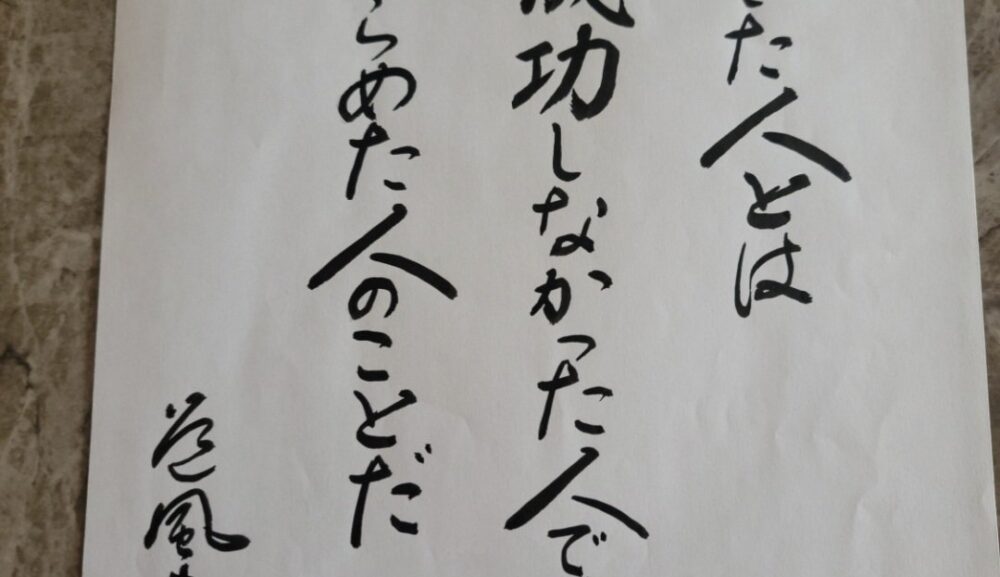 た人とは
成功しなかった人で
らめた人のことだ
道風